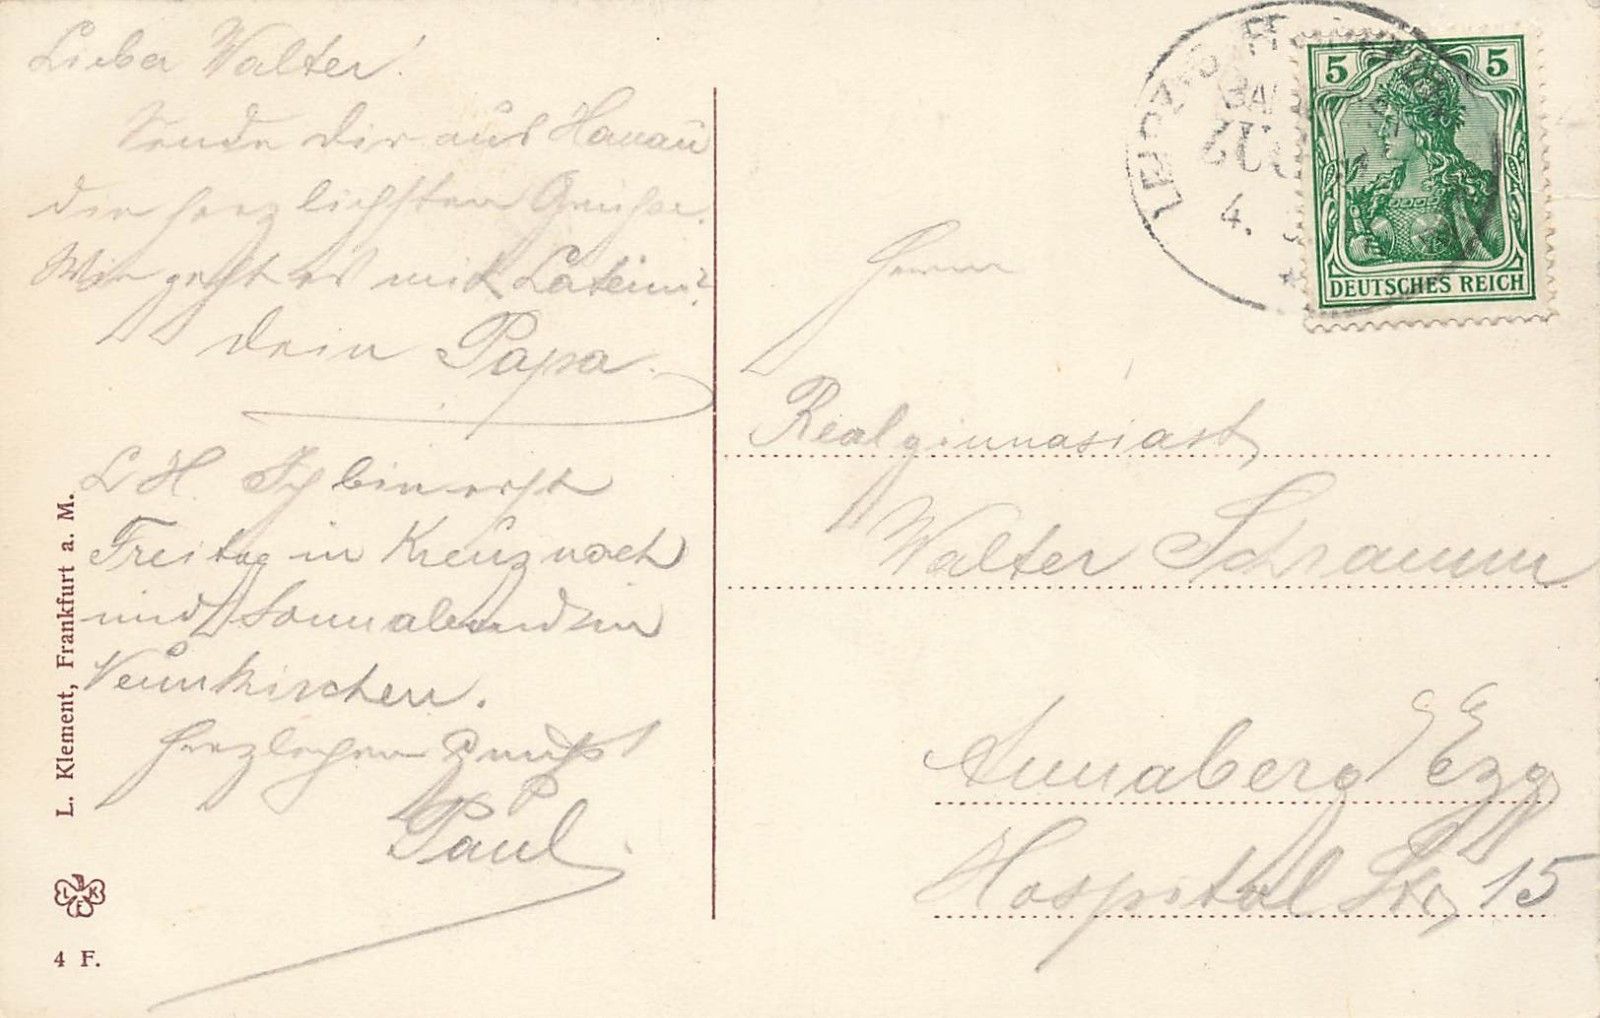 Lieber Walter!
Sende Dir aus Hanau
die herzlichsten Grüsse.
Wie geht es mit Latein?
Dein Papa.
L H. Ich bin erst
Freitag in Kreuznach
und Sonnabend in
Neunkirchen.
Herzlichen Gruß
Paul
L. Klement, Frankfurt a. M.
L K F
4 F.
LEIPZIG
ZUG
4.
5 5
DEUTSCHES REICH
Herrn
Realgimnasiast
Walter Schramm
Annaberg Ezg
Hospital Str. 15